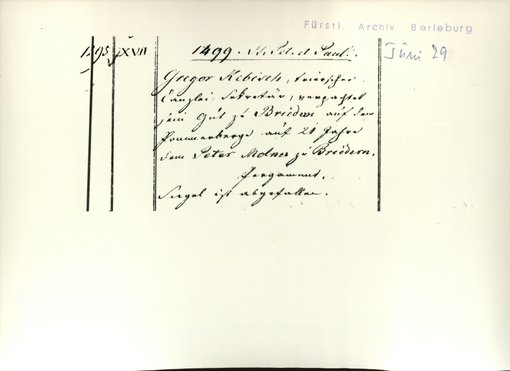 Fürstl. Archiv Berleburg
Juni 29
1495 XVII 1499. St. Pet. et Paul.
Gregor Kebisch, trierscher
Canzlei Sekretär, verpachtet
sein Gut zu Briedern auf dem
Pommerberge auf 21 Jahre
dem Peter Molner zu Briedern.
Pergament.
Siegel ist abgefallen.